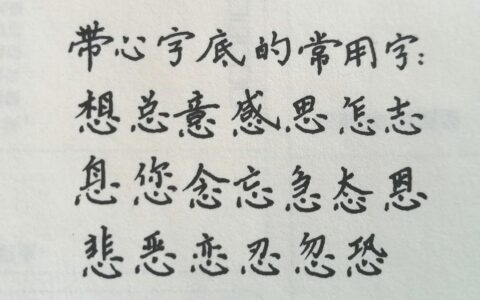 带心字底的常用字:
想总意感思怎志
息您念忘急态恩
悲恶恋忍忽恐